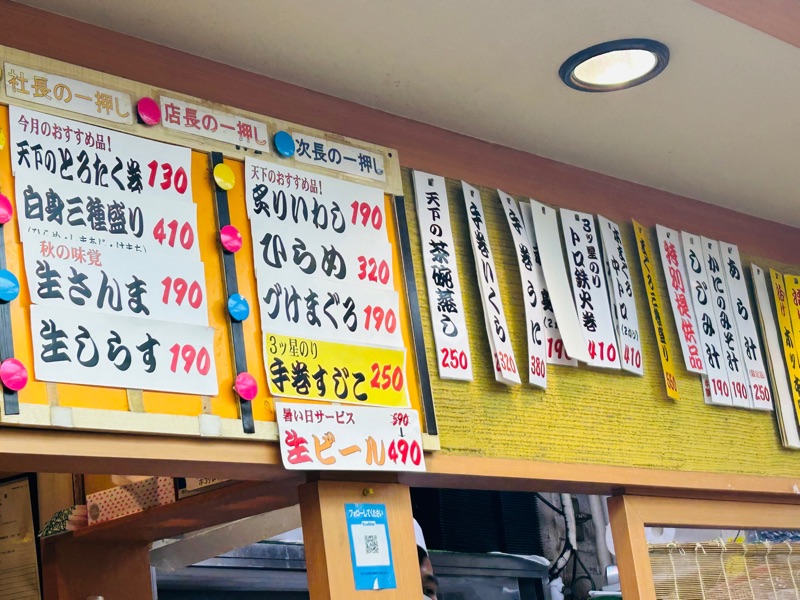 社長の一押し
店長の一押し
次長の一押し
今月のおすすめ品!
天下のとろたく巻 130
白身三種盛り 410
秋の味覚
生さんま 190
生しらす 190
天下のおすすめ品!
炙りいわし 190
ひらめ 320
づけまぐろ 190
3ッ星のり
手巻すじこ 250
暑い日サービス
590
↓
生ビール 490
天下の茶碗蒸し 250
手巻いくら 320
手巻うに 380
190
3ッ星のり
トロ鉄火巻 410
本まぐろ
中トロ(2カン) 410
三種盛り 550
特別提供品
しじみ汁 190
かにのみそ汁 190
あら汁 250
フォローしてください